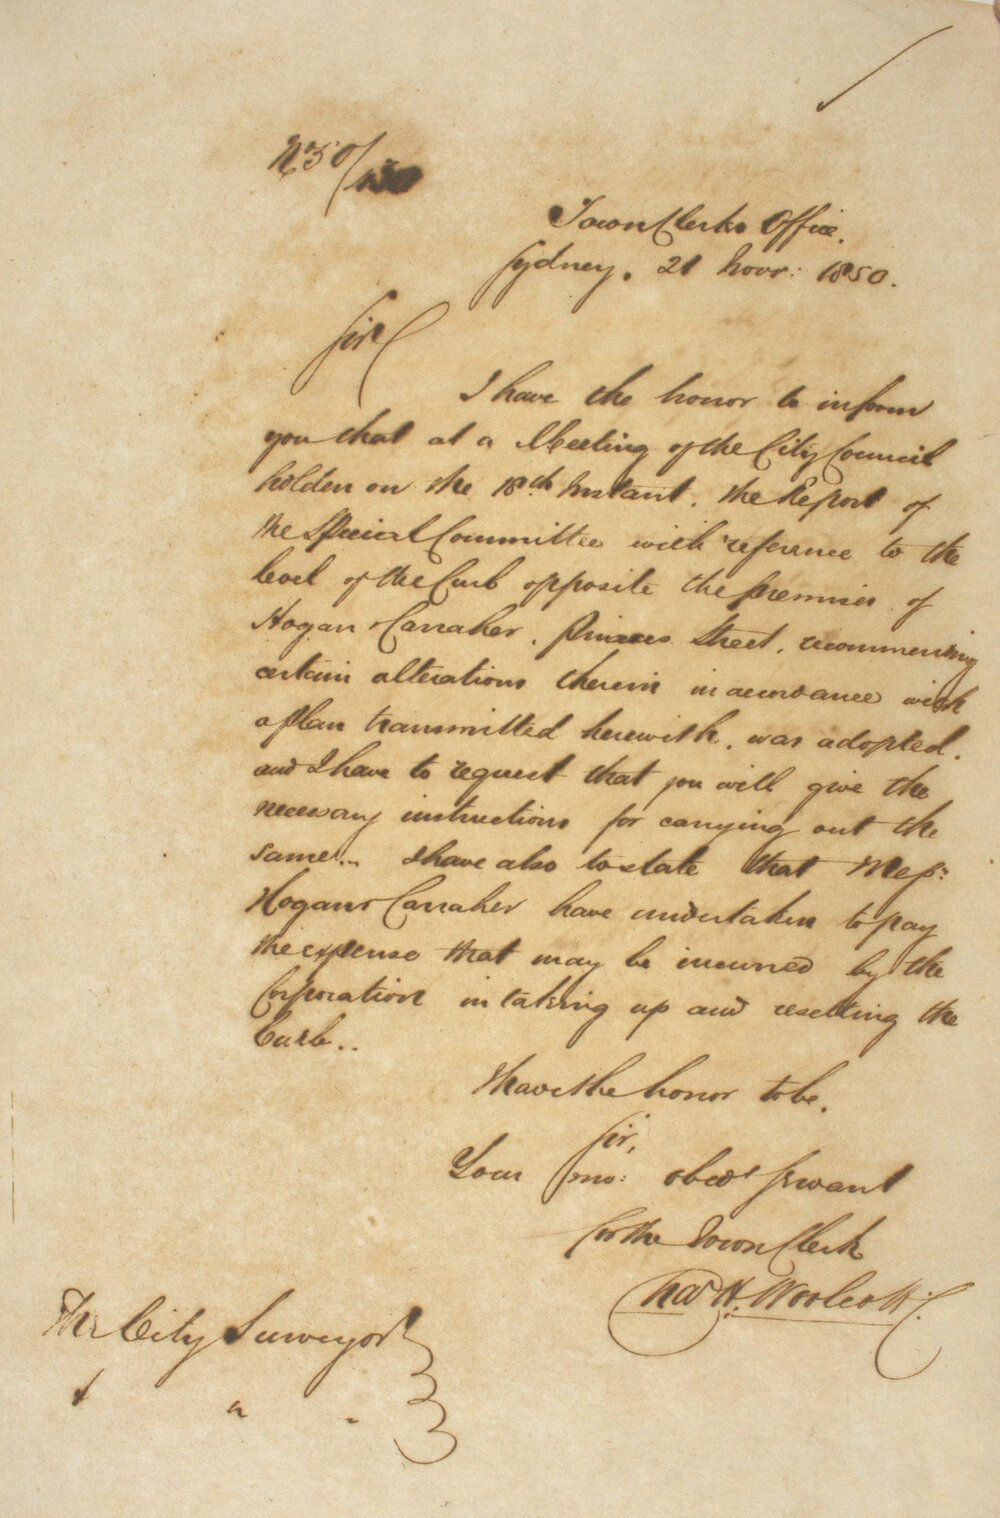 No 50/
Town Clerks Office.
Sydney. 21 Novr: 1850.
Sir
I have the honor to inform
you that at a Meeting of the City Council
holden on the 18th Instant. the Report of
the Special Committee with reference to the
level of the Curb opposite the premises of
Hogan & Carraher. Princes Street, recommending
certain alterations therein in accordance with
a plan transmitted herewith. was adopted.
and I have to request that you will give the
necessary instructions for carrying out the
same.. I have also to state that Mess:
Hogan & Carraher have undertaken to pay
the expense that may be incurred by the
Corporation in taking up and resetting the
Curb..
I have the honor to be.
Sir,
Your mo: obedt Servant
for the Town Clerk
Chas H. Woolcott
The City Surveyor
& " "